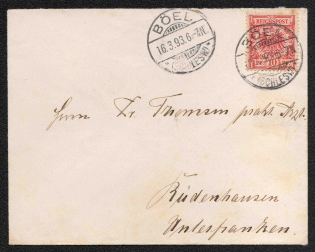 BÖEL
16.3.93.6-7N.
(SCHLESW.)
REICHSPOST
10
BÖEL
(SCHLESW.)
Herrn Dr. Thomsen prakt. Arzt.
Rüdenhausen
Unterfranken.